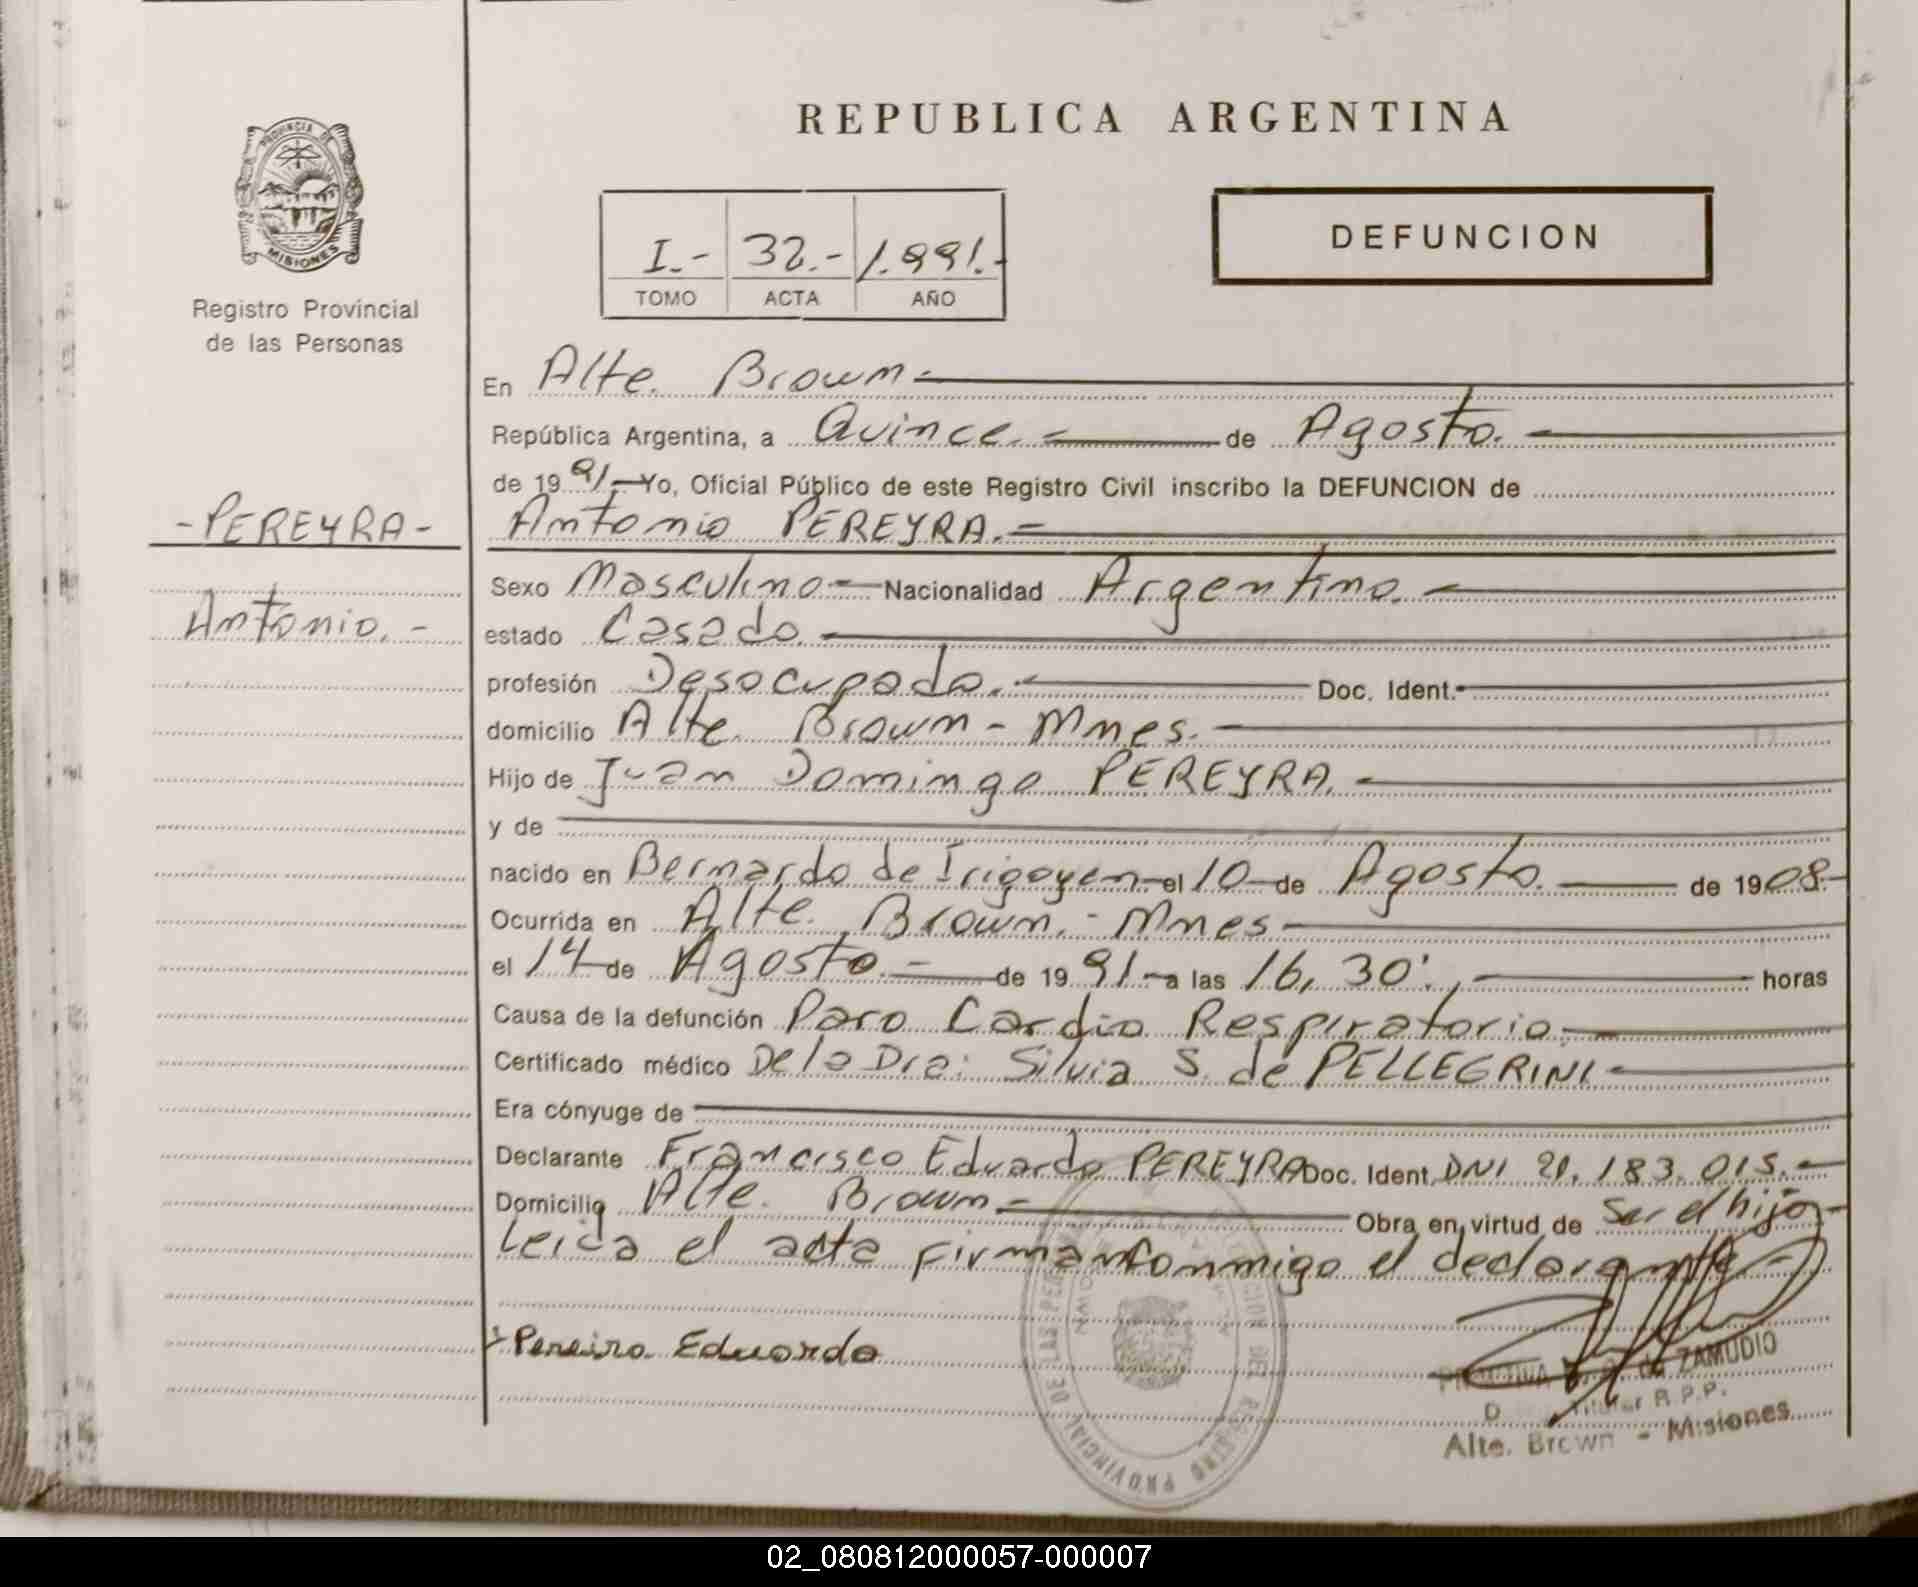 REPUBLICA ARGENTINA
PROVINCIA DE
MISIONES
Registro Provincial
de las Personas
I.- 32.- 1.991.-
TOMO ACTA AÑO
DEFUNCION
En Alte. Brown.-
República Argentina, a Quince.- de Agosto.-
de 19 91.- Yo, Oficial Público de este Registro Civil inscribo la DEFUNCION de
-PEREYRA-
Antonio PEREYRA.-
Antonio.-
Sexo Masculino- Nacionalidad Argentino.-
estado Casado.-
profesión Desocupado.- Doc. Ident.-
domicilio Alte. Brown - Mnes.-
Hijo de Juan Domingo PEREYRA.-
y de
nacido en Bernardo de Irigoyen- el 10- de Agosto.- de 19 08.-
Ocurrida en Alte. Brown.- Mnes-
el 14- de Agosto.- de 19 91- a las 16,30'.- horas
Causa de la defunción Paro Cardio Respiratorio.-
Certificado médico De la Dra: Silvia S. de PELLEGRINI-
Era cónyuge de
Declarante Francisco Eduardo PEREYRA Doc. Ident. DNI 21.183.015.-
Domicilio Alte. Brown.- Obra en virtud de Ser el hijo-
Leida el acta firman conmigo el declarante-
Pereira Eduardo
de ZAMUDIO
Titular R.P.P.
Alte. Brown - Misiones
REGISTRO PROVINCIAL DE LAS
02_080812000057-000007